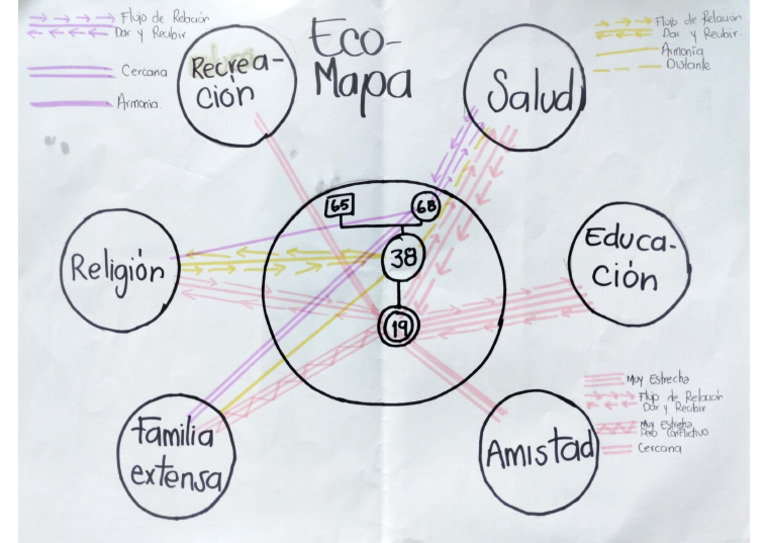 Flujo de Relación
Dar y Recibir
Cercana
Armonia
Eco-
Mapa
Flujo de Relación
Dar y Recibir.
Armonía
Distante
Recrea-
ción
Salud
65
68
Religión
38
Educa-
ción
19
Muy Estrecha
Flujo de Relación
Dar y Recibir
Muy Estrecha
Pero Conflictivo
Cercana
Familia
extensa
Amistad